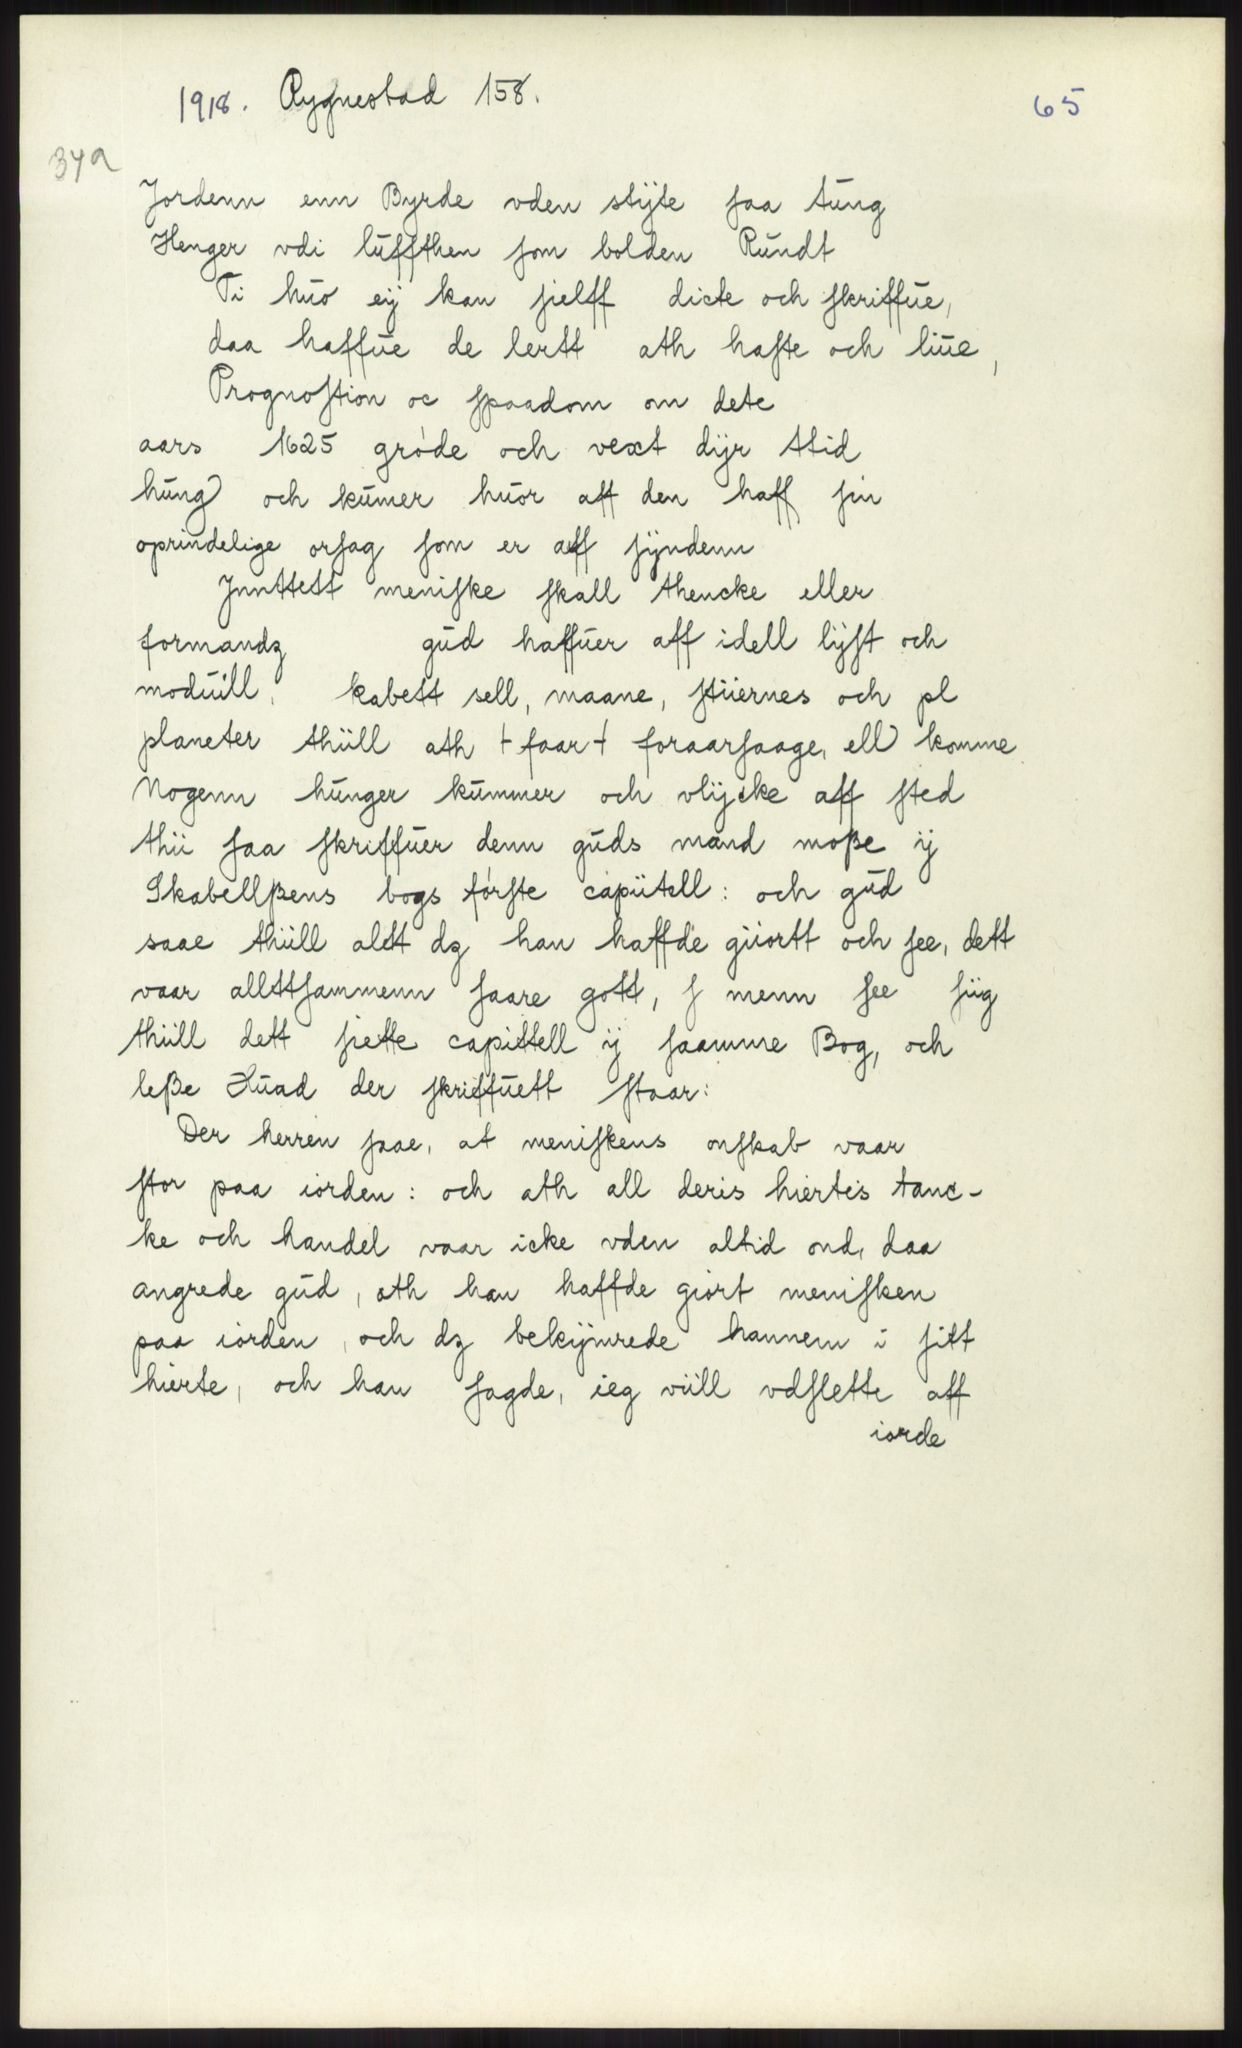 1918. Rygnestad 158.
65
34a
Jordenn enn Byrde vden stÿte saa tung
Henger vdi luffthen som bolden Rundt
Ti huo eÿ kan sielff dicte och skriffue,
daa haffue de lertt ath hafte och liue,
Prognostion oc spaadom om dete
aars 1625 grøde och vext dÿr ttid
hung och kumer huor aff den haff sin
oprindelige orsag som er aff sÿndenn
Jnnttett meniske skall thencke eller
formandz gud haffuer aff idell lÿst och
moduill. kabett sell, maane, stiernes och pl
planeter thiill ath † faar † foraarsaage, ell komme
Nogenn hunger kummer och vlÿcke aff sted
thii saa skriffuer denn guds mand moße ÿ
Skabellßens bogs første capiitell: och gud
saae thiill altt dz han haffde giiortt och see, dett
vaar allttsammenn saare gott, ſ menn see siig
thiill dett siette capittell ÿ saamme Bog, och
leße Huad der skriffuett staar:
Der herren saae, at meniskens onskab vaar
stor paa iorden: och ath all deris hiertis tanc-
ke och handel vaar icke vden altid ond, daa
angrede gud, ath han haffde giort menisken
paa iorden, och dz bekÿmrede hannem i sitt
hierte, och han sagde, ieg viill vdslette aff
iorde